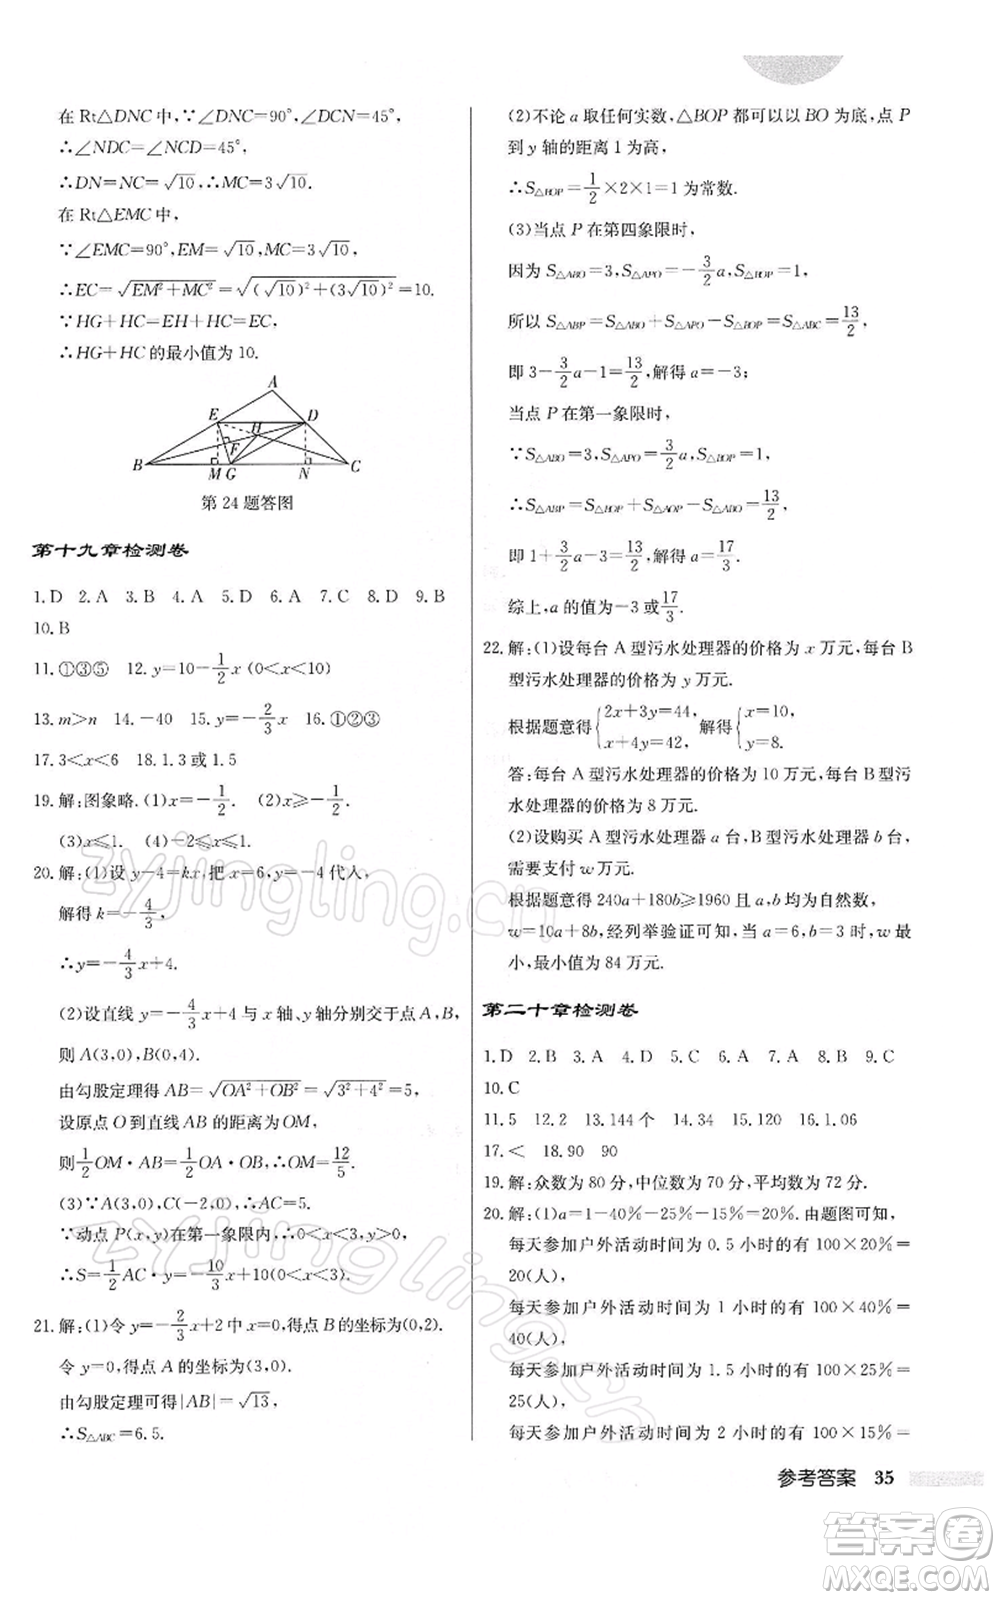 在 Rt△DNC 中,∵∠DNC=90°,∠DCN=45°,
∴∠NDC=∠NCD=45°,
∴DN=NC=√10,∴MC=3√10.
在 Rt△EMC 中,
∵∠EMC=90°,EM=√10,MC=3√10,
∴EC=√(EM²+MC²)=√((√10)²+(3√10)²)=10.
∵HG+HC=EH+HC=EC,
∴HG+HC 的最小值为 10.
A
E H D
F
B M G N C
第 24 题答图
第十九章检测卷
1.D 2.A 3.B 4.A 5.D 6.A 7.C 8.D 9.B
10.B
11.①③⑤ 12.y=10-1/2x(0<x<10)
13.m>n 14.-40 15.y=-2/3x 16.①②③
17.3<x<6 18.1.3 或 1.5
19.解:图象略.(1)x=-1/2. (2)x≥-1/2.
(3)x≤1. (4)-2≤x≤1.
20.解:(1)设 y-4=kx,把 x=6,y=-4 代人,
解得 k=-4/3,
∴y=-4/3x+4.
(2)设直线 y=-4/3x+4 与 x 轴、y 轴分别交于点 A,B,
则 A(3,0),B(0,4).
由勾股定理得 AB=√(OA²+OB²)=√(3²+4²)=5,
设原点 O 到直线 AB 的距离为 OM,
则1/2OM·AB=1/2OA·OB,∴OM=12/5.
(3)∵A(3,0),C(-2,0),∴AC=5.
∵动点 P(x,y)在第一象限内,∴0<x<3,
∴S=1/2AC·y=-10/3x+10(0<x<3).
21.解:(1)令 y=-2/3x+2 中 x=0,得点 B 的坐标为(0,2).
令 y=0,得点 A 的坐标为(3,0).
由勾股定理可得|AB|=√13,
∴S△ABC=6.5.
(2)不论 a 取任何实数,△BOP 都可以以 BO 为底,点 P
到 y 轴的距离 1 为高,
∴S△BOP=1/2×2×1=1 为常数.
(3)当点 P 在第四象限时,
因为 S△ABO=3,S△APO=-3/2a,S△BOP=1,
所以 S△ABP=S△ABO+S△APO-S△BOP=S△ABC=13/2,
即 3-3/2a-1=13/2,解得 a=-3;
当点 P 在第一象限时,
∵S△ABO=3,S△APO=3/2a,S△BOP=1,
∴S△ABP=S△BOP+S△AOP-S△ABO=13/2,
即 1+3/2a-3=13/2,解得 a=17/3.
综上,a 的值为-3 或17/3.
22.解:(1)设每台 A 型污水处理器的价格为 x 万元,每台 B
型污水处理器的价格为 y 万元.
根据题意得{2x+3y=44, x+4y=42,解得{x=10, y=8.
答:每台 A 型污水处理器的价格为 10 万元,每台 B 型污
水处理器的价格为 8 万元.
(2)设购买 A 型污水处理器 a 台,B 型污水处理器 b 台,
需要支付 w 万元.
根据题意得 240a+180b≥1960 且 a,b 为自然数,
w=10a+8b,经列举验证可知,当 a=6,b=3 时,w 最
小,最小值为 84 万元.
第二十章检测卷
1.D 2.B 3.A 4.D 5.C 6.A 7.A 8.B 9.C
10.C
11.5 12.2 13.144 个 14.乙 15.120 16.1.06
17.< 18.90 90
19.解:众数为 80 分,中位数为 70 分,平均数为 72 分.
20.解:(1)a=1-40%-25%-15%=20%.由题图可知,
每天参加户外活动时间为 0.5 小时的有 100×20%=
20(人),
每天参加户外活动时间为 1 小时的有 100×40%=
40(人),
每天参加户外活动时间为 1.5 小时的有 100×25%=
25(人),
每天参加户外活动时间为 2 小时的有 100×15%=
参考答案 35
zyjingling.cn
zyjingling.cn
答案圈
MXQE.COM